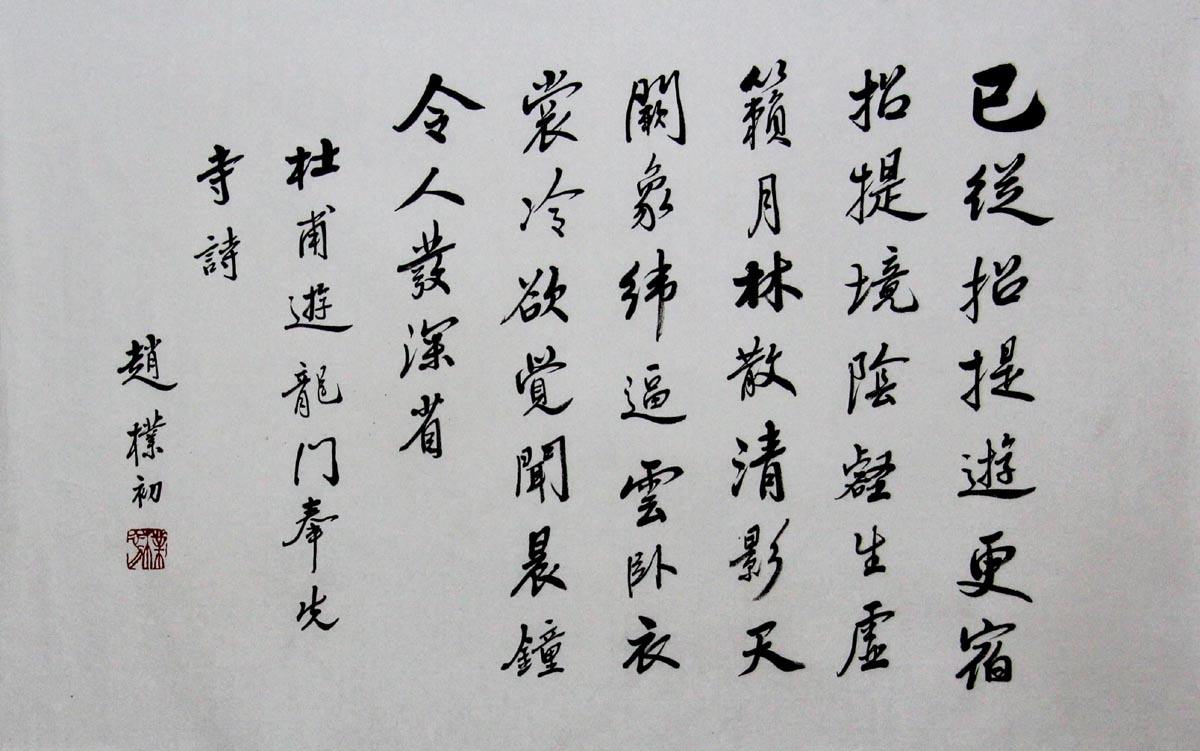 已從招提遊更宿
招提境陰壑生虛
籟月林散清影天
闕象緯逼雲臥衣
裳冷欲覺聞晨鐘
令人發深省
杜甫遊龍门奉先
寺詩
趙樸初